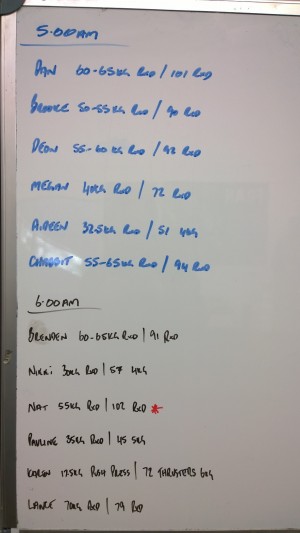 5.00AM
DAN 60-65KG RXD / 101 RXD
BROOKE 50-55KG RXD / 90 RXD
DEON 55-60KG RXD / 92 RXD
MEGAN 40KG RXD / 72 RXD
AIREEN 32.5KG RXD / 51 4KG
55-65KG RXD / 94 RXD
6.00AM
BRENDEN 60-65KG RXD | 91 RXD
NIKKI 30KG RXD | 57 4KG
NAT 55KG RXD | 102 RXD *
PAULINE 35KG RXD | 45 5KG
KAREN 17.5KG PUSH PRESS | 72 THRUSTERS 6KG
LANCE 70KG RXD | 79 RXD